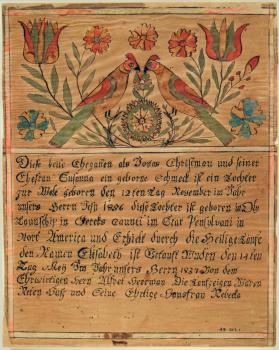 Diese beite Ehegatten als Christman und seiner
Ehefrau Susanna ein geborne Schmeck ist ein Tochter
zur Welt geboren den 12ten Tag November im Jahr
unsers Herrn diese Tochter ist geboren in
Taunschip in Berks Caunti im Stat Pensilvani in
Nort America und Erhielt durch die Heilige Taufe
den Namen Elisabeth ist Getauft Wuden den 14ten
Tag Mey Im Jahr unsers Herrn Von dem
Ehrwirtigen Herrn Alfred Herrman Die Taufzeigen Waren
und Seine Ehrlige Hausfrau Rebeka